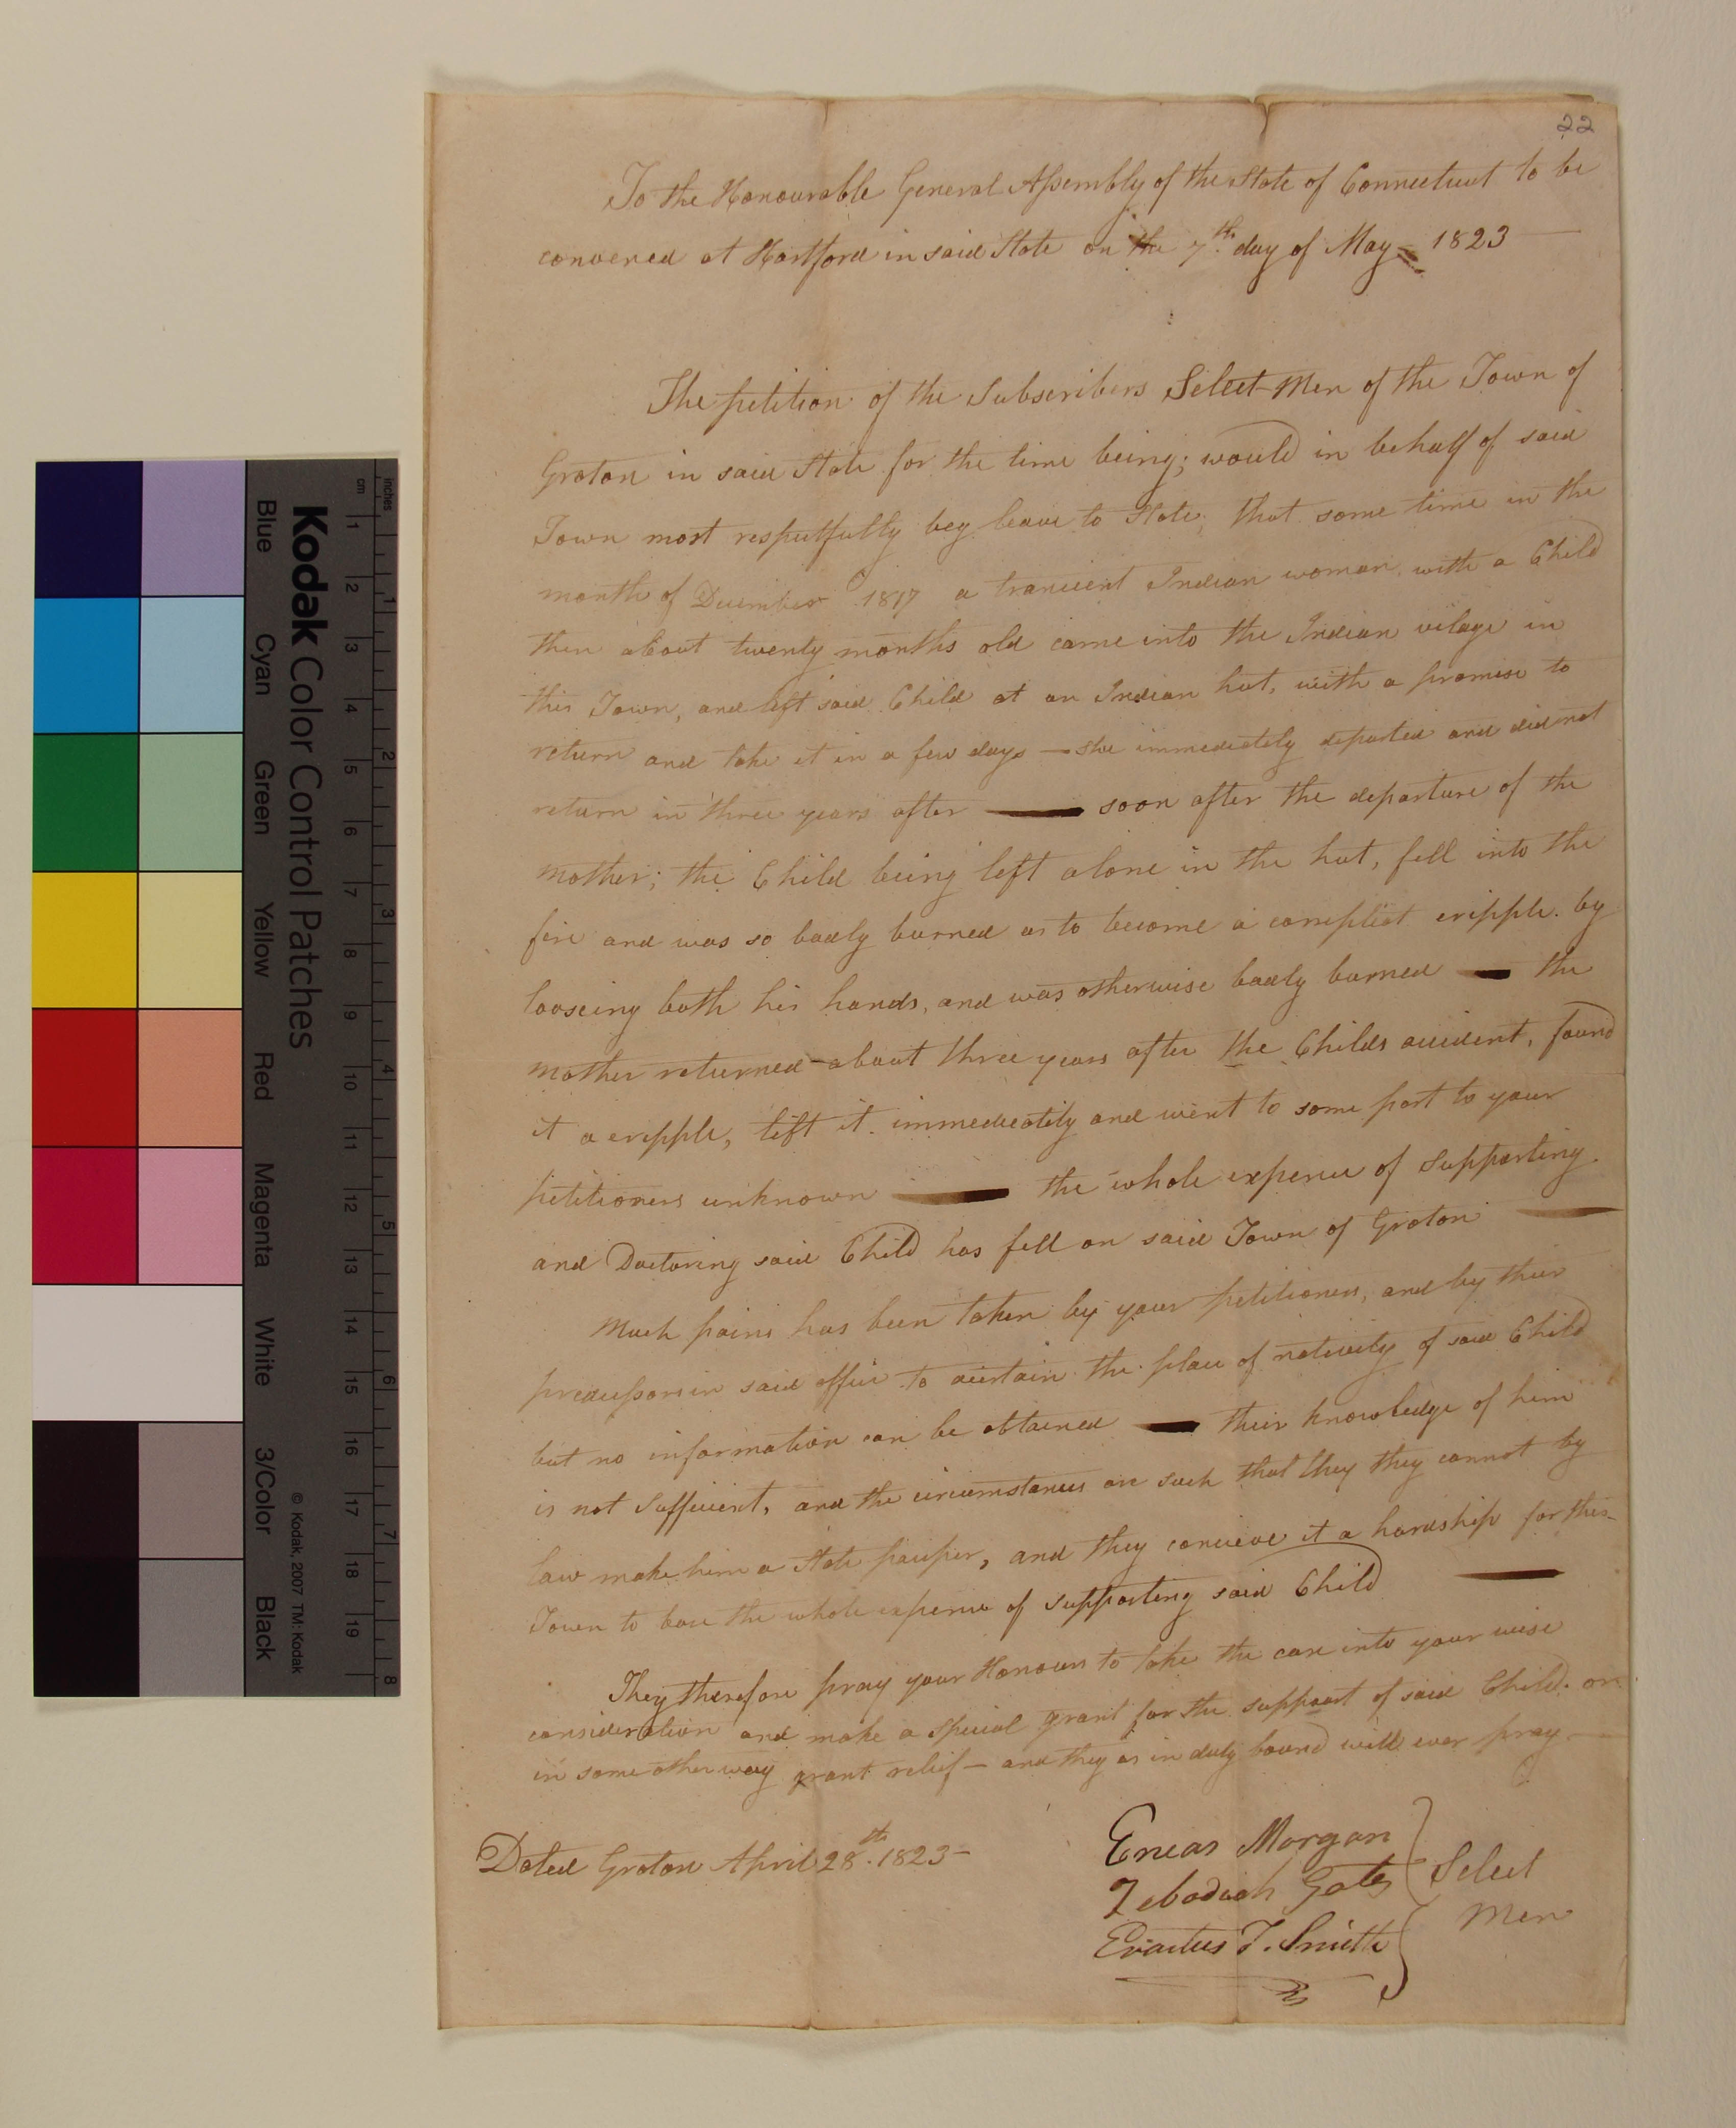 22
To the Honourable General Assembly of the State of Connecticut to be
convened at Hartford in said State on the 7th. day of May 1823
The petition of the Subscribers Select-Men of the Town of
Groton in said State for the time being; would in behalf of said
Town most respectfully beg leave to State, that some time in the
month of December 1817 a trancient Indian woman with a Child
then about twenty months old came into the Indian vilage in
this Town, and left said Child at an Indian hut, with a promise to
return and take it in a few days — she immediately departed and did not
return in three years after — soon after the departure of the
mother; the Child being left alone in the hut, fell into the
fire and was so badly burned as to become a compleat cripple. by
looseing both his hands, and was otherwise badly burned — the
mother returned about three years after the Childs accident, found
it a cripple, left it immedieatily and went to some part to your
petitioners unknown — the whole expence of Supporting
and Doctoring said Child has fell on said Town of Groton —
Much pains has been taken by your petitioners, and by their
predecessors in said office to acertain the place of nativity of said Child
but no information can be obtained — their knowledge of him
is not Sufficient, and the circumstances are such that they they cannot by
law make him a State pauper, and they concieve it a hardship for this
Town to bare the whole expence of supporting said Child —
They therefore pray your Honours to take the case into your wise
consideration and make a special grant for the suppoart of said Child. or
in some other way grant relief — and they as in duty bound will ever pray —
Dated Groton April 28th. 1823 —
Eneas Morgan
Zebadiah Gates
Erastus T. Smith
Select
Men
Kodak Color Control Patches
Blue Cyan Green Yellow Red Magenta White 3/Color Black
© Kodak, 2007 TM: Kodak
cm 1 2 3 4 5 6 7 8 9 10 11 12 13 14 15 16 17 18 19
inches 1 2 3 4 5 6 7 8